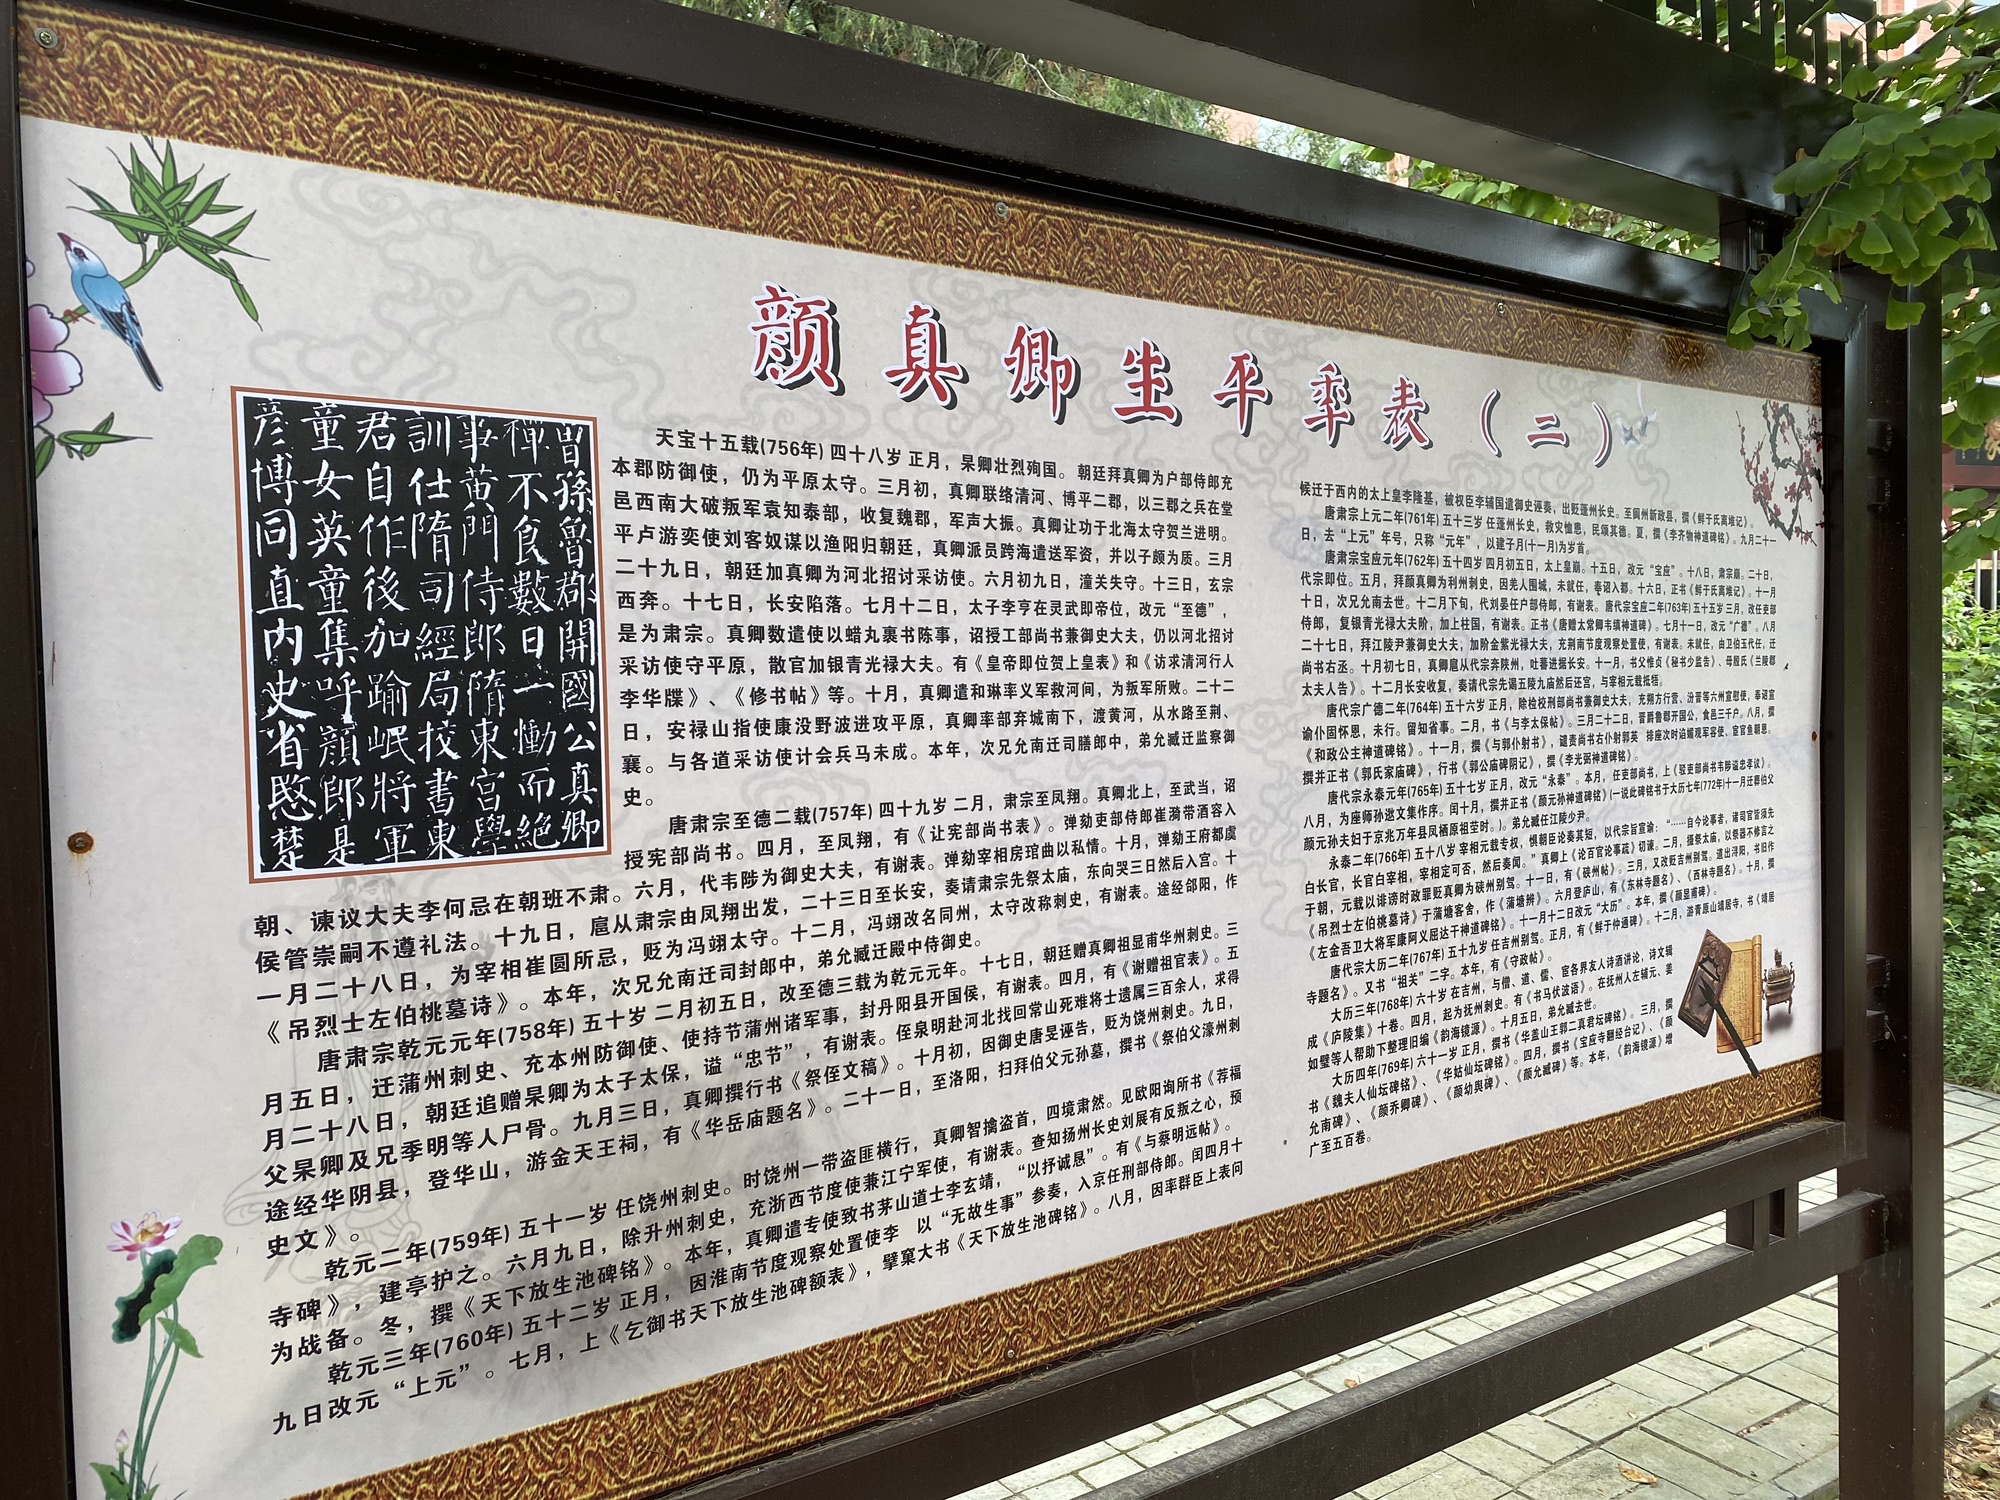 颜真卿生平年表（二）
曾孫魯郡開國公真卿
禪不良數日一慟而絶
事黄門侍郎隋東宮學
訓仕隋司經局挍書東
君自作後加踰岷將軍
童女英童集呼顔郎是
彦博同直内史省愍楚
天宝十五载(756年) 四十八岁 正月，杲卿壮烈殉国。朝廷拜真卿为户部侍郎充
本郡防御使，仍为平原太守。三月初，真卿联络清河、博平二郡，以三郡之兵在堂
邑西南大破叛军袁知泰部，收复魏郡，军声大振。真卿让功于北海太守贺兰进明。
平卢游奕使刘客奴谋以渔阳归朝廷，真卿派员跨海遣送军资，并以子颇为质。三月
二十九日，朝廷加真卿为河北招讨采访使。六月初九日，潼关失守。十三日，玄宗
西奔。十七日，长安陷落。七月十二日，太子李亨在灵武即帝位，改元“至德”，
是为肃宗。真卿数遣使以蜡丸裹书陈事，诏授工部尚书兼御史大夫，仍以河北招讨
采访使守平原，散官加银青光禄大夫。有《皇帝即位贺上皇表》和《访求清河行人
李华牒》、《修书帖》等。十月，真卿遣和琳率义军救河间，为叛军所败。二十二
日，安禄山指使康没野波进攻平原，真卿率部弃城南下，渡黄河，从水路至荆、
襄。与各道采访使计会兵马未成。本年，次兄允南迁司膳郎中，弟允臧迁监察御
史。
唐肃宗至德二载(757年) 四十九岁 二月，肃宗至凤翔。真卿北上，至武当，诏
授宪部尚书。四月，至凤翔，有《让宪部尚书表》。弹劾吏部侍郎崔漪带酒容入
朝、谏议大夫李何忌在朝班不肃。六月，代韦陟为御史大夫，有谢表。弹劾宰相房琯曲以私情。十月，弹劾王府都虞
侯管崇嗣不遵礼法。十九日，扈从肃宗由凤翔出发，二十三日至长安，奏请肃宗先祭太庙，东向哭三日然后入宫。十
一月二十八日，为宰相崔圆所忌，贬为冯翊太守。十二月，冯翊改名同州，太守改称刺史，有谢表。途经郃阳，作
《吊烈士左伯桃墓诗》。本年，次兄允南迁司封郎中，弟允臧迁殿中侍御史。
唐肃宗乾元元年(758年) 五十岁 二月初五日，改至德三载为乾元元年。十七日，朝廷赠真卿祖显甫华州刺史。三
月五日，迁蒲州刺史、充本州防御使、使持节蒲州诸军事，封丹阳县开国侯，有谢表。四月，有《谢赠祖官表》。五
月二十八日，朝廷追赠杲卿为太子太保，谥“忠节”，有谢表。侄泉明赴河北找回常山死难将士遗属三百余人，求得
父杲卿及兄季明等人尸骨。九月三日，真卿撰行书《祭侄文稿》。十月初，因御史唐旻诬告，贬为饶州刺史。九日，
途经华阴县，登华山，游金天王祠，有《华岳庙题名》。二十一日，至洛阳，扫拜伯父元孙墓，撰书《祭伯父濠州刺
史文》。
乾元二年(759年) 五十一岁 任饶州刺史。时饶州一带盗匪横行，真卿智擒盗首，四境肃然。见欧阳询所书《荐福
寺碑》，建亭护之。六月九日，除升州刺史，充浙西节度使兼江宁军使，有谢表。查知扬州长史刘展有反叛之心，预
为战备。冬，撰《天下放生池碑铭》。本年，真卿遣专使致书茅山道士李玄靖，“以抒诚恳”。有《与蔡明远帖》。
乾元三年(760年) 五十二岁 正月，因淮南节度观察处置使李 以“无故生事”参奏，入京任刑部侍郎。闰四月十
九日改元“上元”。七月，上《乞御书天下放生池碑额表》，擘窠大书《天下放生池碑铭》。八月，因率群臣上表问
候迁于西内的太上皇李隆基，被权臣李辅国遣御史诬奏，出贬蓬州长史。至阆州新政县，撰《鲜于氏离堆记》。
唐肃宗上元二年(761年) 五十三岁 任蓬州长史，救灾恤患，民颂其德。夏，撰《李齐物神道碑铭》。九月二十一
日，去“上元”年号，只称“元年”，以建子月(十一月)为岁首。
唐肃宗宝应元年(762年) 五十四岁 四月初五日，太上皇崩。十五日，改元“宝应”。十八日，肃宗崩。二十日，
代宗即位。五月，拜颜真卿为利州刺史，因羌人围城，未就任，奉诏入都。十六日，正书《鲜于氏离堆记》。十一月
十日，次兄允南去世。十二月下旬，代刘晏任户部侍郎，有谢表。唐代宗宝应二年(763年) 五十五岁 三月，改任吏部
侍郎，复银青光禄大夫阶，加上柱国，有谢表。正书《唐赠太常卿韦缜神道碑》。七月十一日，改元“广德”。八月
二十七日，拜江陵尹兼御史大夫，加阶金紫光禄大夫，充荆南节度观察处置使，有谢表。未就任，由卫伯玉代任，迁
尚书右丞。十月初七日，真卿扈从代宗奔陕州，吐蕃进据长安。十一月，书父惟贞《秘书少监告》、母殷氏《兰陵郡
太夫人告》。十二月长安收复，奏请代宗先谒五陵九庙然后还宫，与宰相元载抵牾。
唐代宗广德二年(764年) 五十六岁 正月，除检校刑部尚书兼御史大夫，充朔方行营、汾晋等六州宣慰使，奉诏宣
谕仆固怀恩，未行。留知省事。二月，书《与李太保帖》。三月二十二日，晋爵鲁郡开国公，食邑三千户。八月，撰
《和政公主神道碑铭》。十一月，撰《与郭仆射书》，谴责尚书右仆射郭英 排座次时谄媚观军容使、宦官鱼朝恩。
撰并正书《郭氏家庙碑》，行书《郭公庙碑阴记》，撰《李光弼神道碑铭》。
唐代宗永泰元年(765年) 五十七岁 正月，改元“永泰”。本月，任吏部尚书，上《驳吏部尚书韦陟谥忠孝议》。
八月，为座师孙逖文集作序。闰十月，撰并正书《颜元孙神道碑铭》(一说此碑铭书于大历七年(772年)十一月迁葬伯父
颜元孙夫妇于京兆万年县凤栖原祖茔时。)。弟允臧任江陵少尹。
永泰二年(766年) 五十八岁 宰相元载专权，惧朝臣论奏其短，以代宗旨宣谕：“……自今论事者，诸司官皆须先
白长官，长官白宰相，宰相定可否，然后奏闻。”真卿上《论百官论事疏》切谏。二月，摄祭太庙，以祭器不修言之
于朝，元载以诽谤时政罪贬真卿为硖州别驾。十一日，有《硖州帖》。三月，又改贬吉州别驾。道出浔阳，书旧作
《吊烈士左伯桃墓诗》于蒲塘客舍，作《蒲塘辨》。六月登庐山，有《东林寺题名》、《西林寺题名》。十月，撰
《左金吾卫大将军康阿义屈达干神道碑铭》。十一月十二日改元“大历”。本年，撰《颜显甫碑》。
唐代宗大历二年(767年) 五十九岁 任吉州别驾。正月，有《鲜于仲通碑》。十二月，游青原山靖居寺，书《靖居
寺题名》。又书“祖关”二字。本年，有《守政帖》。
大历三年(768年) 六十岁 在吉州，与僧、道、儒、宦各界友人诗酒讲论，诗文辑
成《庐陵集》十卷。四月，起为抚州刺史。有《书马伏波语》。在抚州人左辅元、姜
如璧等人帮助下整理旧编《韵海镜源》。十月五日，弟允臧去世。
大历四年(769年) 六十一岁 正月，撰书《华盖山王郭二真君坛碑铭》。三月，撰
书《魏夫人仙坛碑铭》、《华姑仙坛碑铭》。四月，撰书《宝应寺翻经台记》、《颜
允南碑》、《颜乔卿碑》、《颜幼舆碑》、《颜允臧碑》等。本年，《韵海镜源》增
广至五百卷。